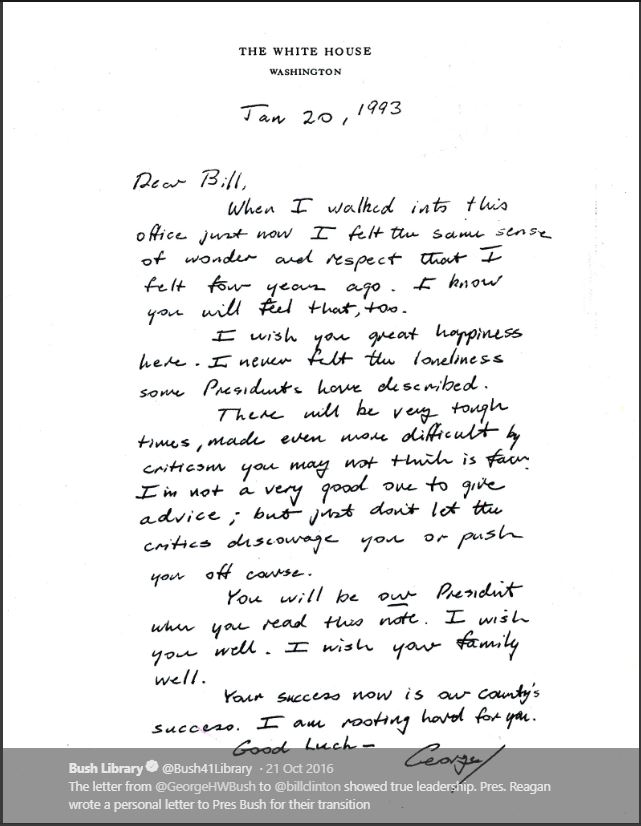 THE WHITE HOUSE
WASHINGTON
Jan 20, 1993
Dear Bill,
When I walked into this
office just now I felt the same sense
of wonder and respect that I
felt four years ago. I know
you will feel that, too.
I wish you great happiness
here. I never felt the loneliness
some Presidents have described.
There will be very tough
times, made even more difficult by
criticism you may not think is fair.
I'm not a very good one to give
advice; but just don't let the
critics discourage you or push
you off course.
You will be our President
when you read this note. I wish
you well. I wish your family
well.
Your success now is our county's
success. I am rooting hard for you.
Good Luck—
George
Bush Library @Bush41Library · 21 Oct 2016
The letter from @GeorgeHWBush to @billclinton showed true leadership. Pres. Reagan
wrote a personal letter to Pres Bush for their transition